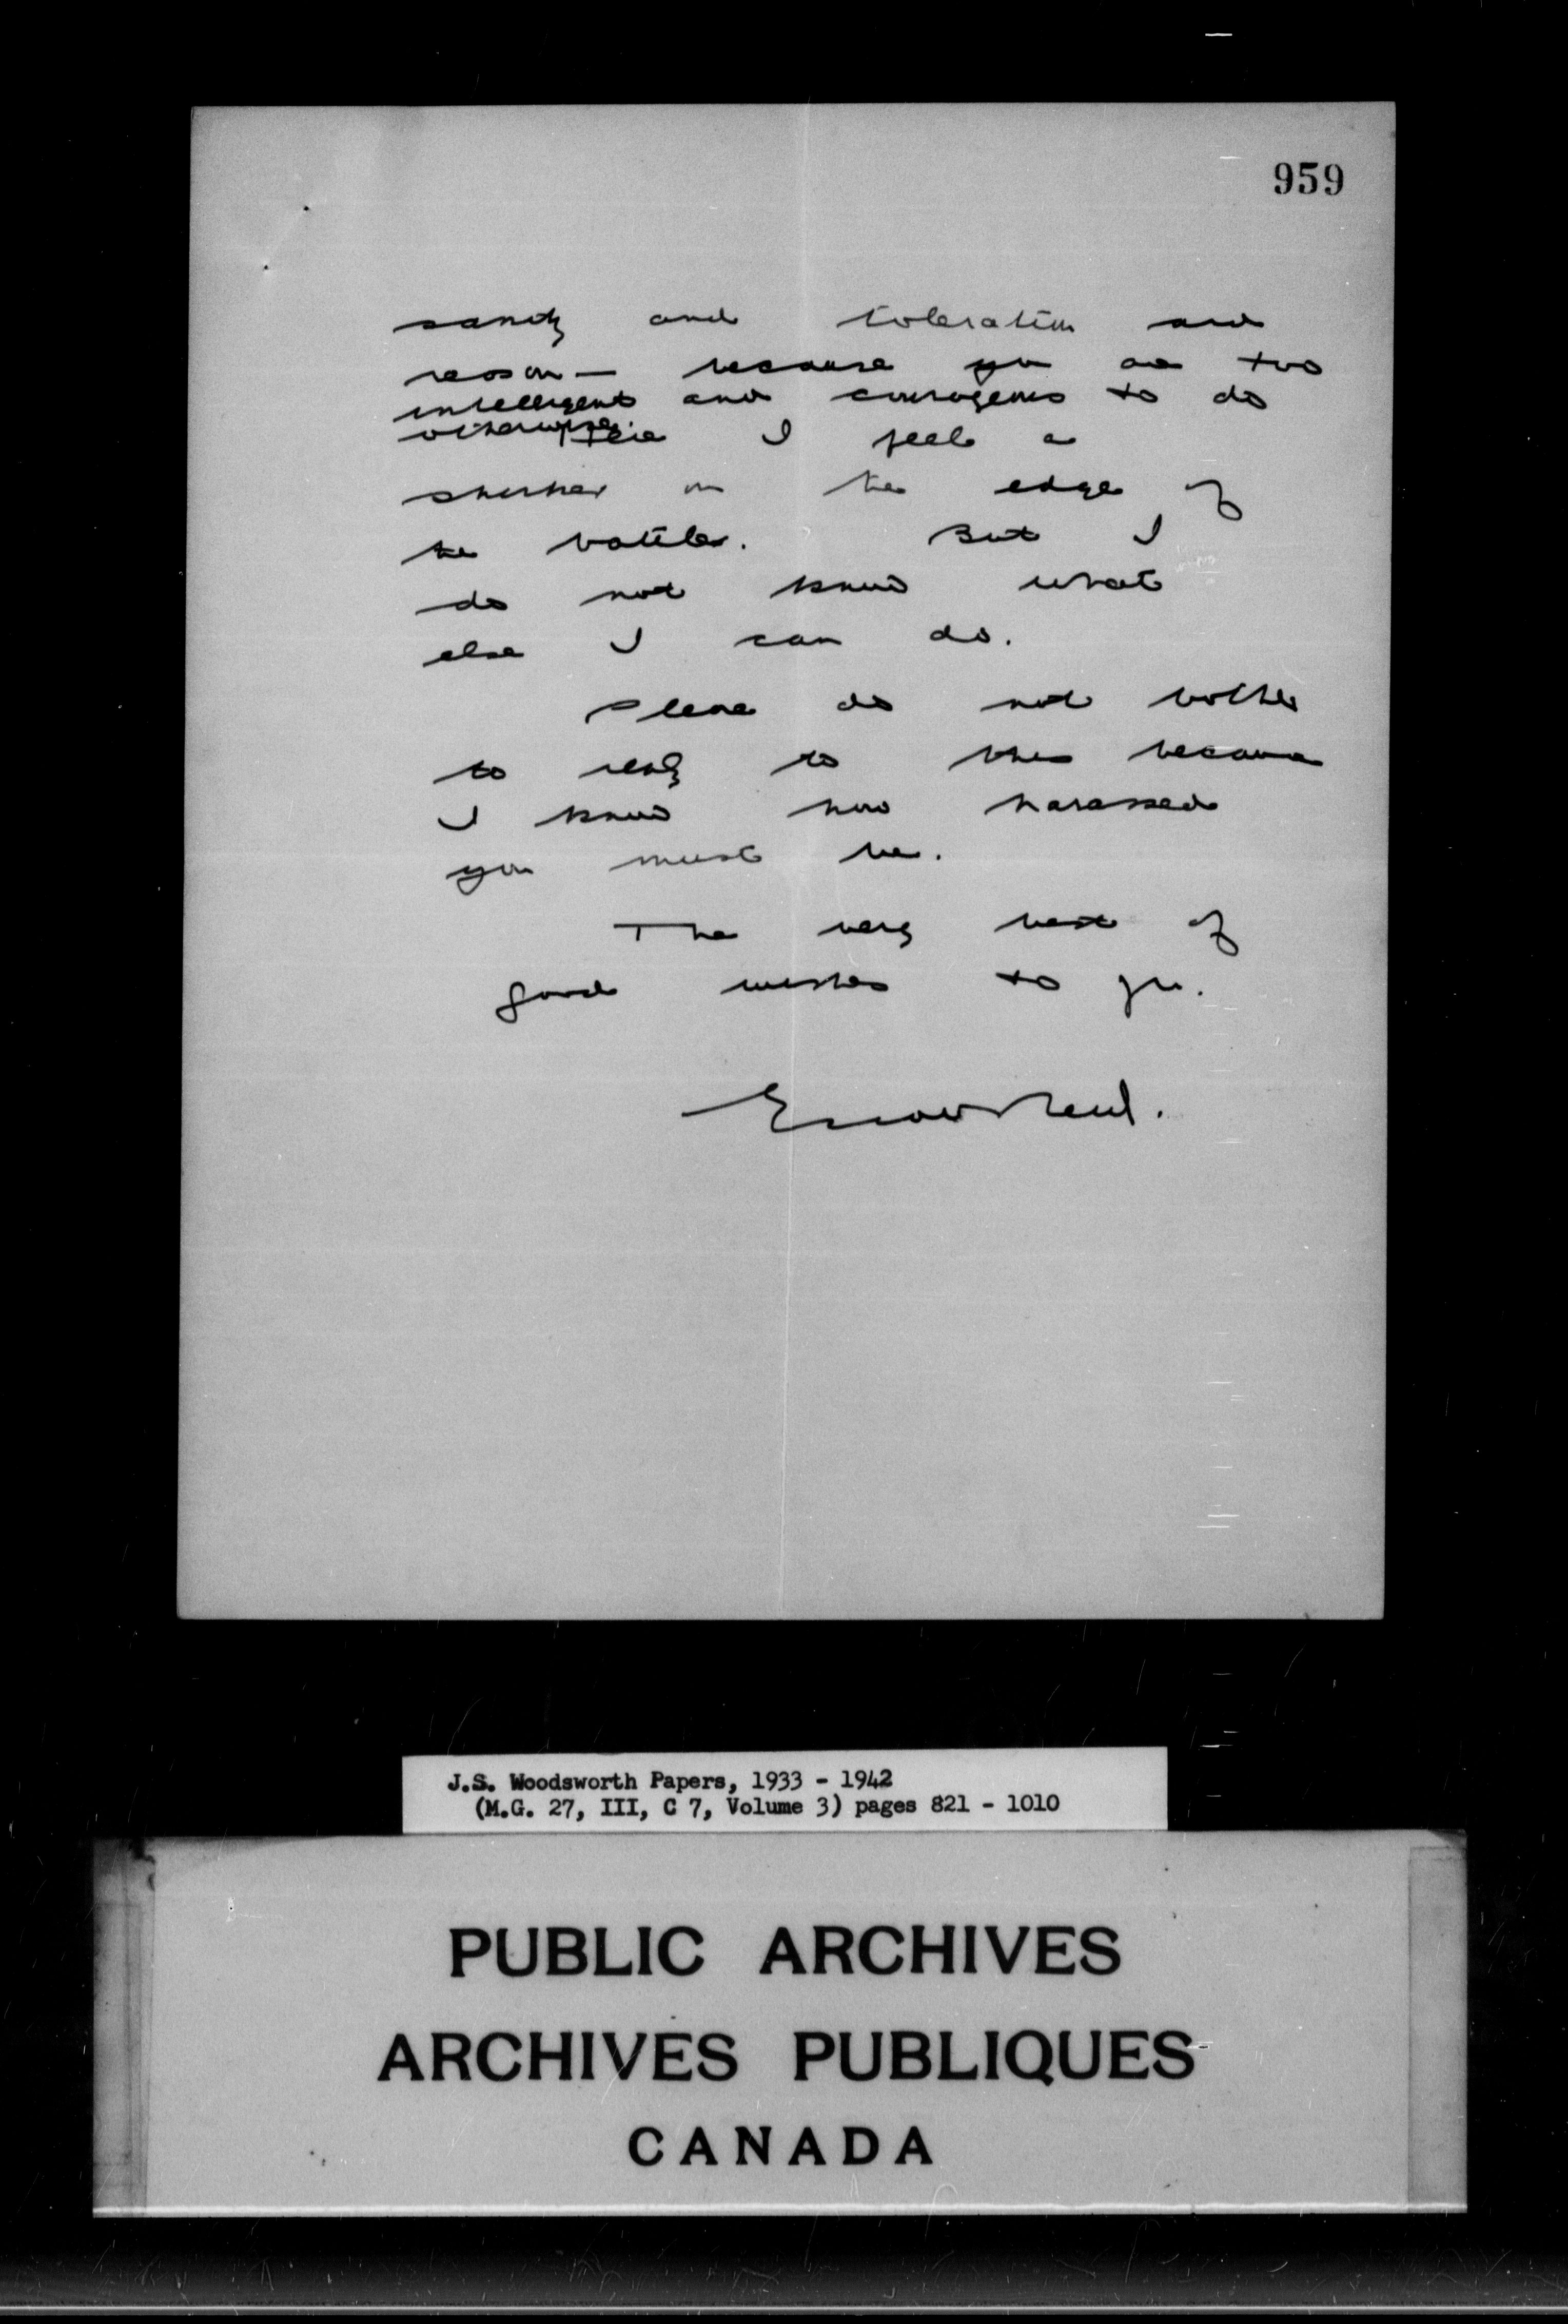 959
sanity and toleration and
reason — because you are too
intelligent and courageous to do
otherwise. Here I feel a
shirker on the edge of
the battle. But I
do not know what
else I can do.
Please do not bother
to reply to this because
I know how harassed
you must be.
The very best of
good wishes to you.
J.S. Woodsworth Papers, 1933 - 1942
(M.G. 27, III, C 7, Volume 3) pages 821 - 1010
PUBLIC ARCHIVES
ARCHIVES PUBLIQUES
CANADA